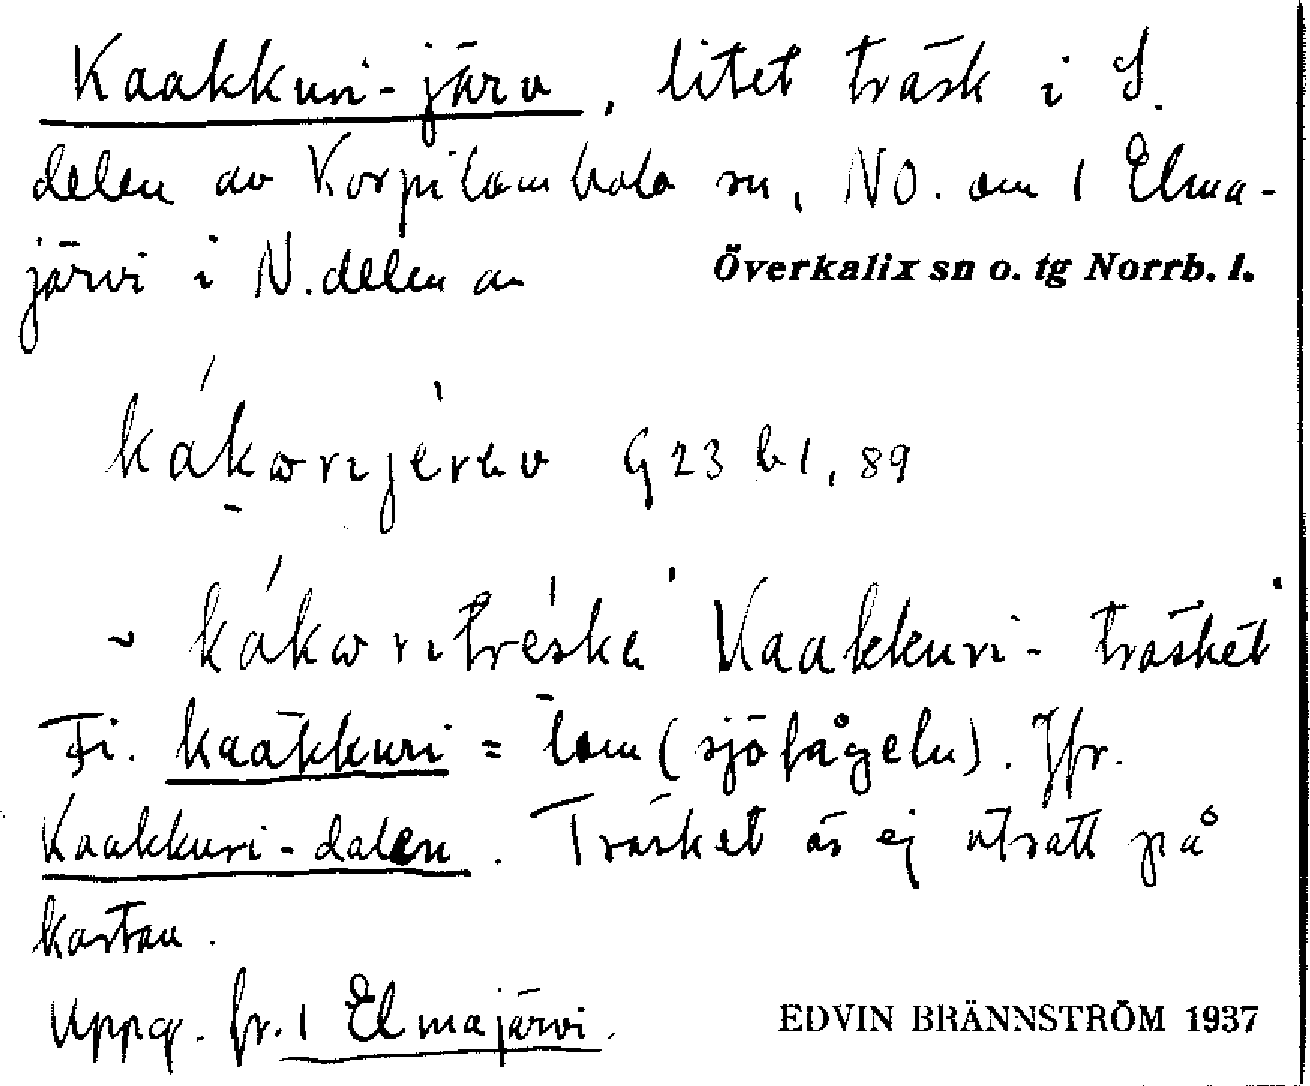 Kaakkuri-järv, litet träsk i S.
delen av Korpilombolo sn, NO. om 1 Elma-
järvi i N. delen av Överkalix sn o. tg Norrb. l.
G 23 b 1, 89
"Kaakkuri-träsket"
Fi. kaakkuri = lom (sjöfågeln). Jfr.
Kaakkuri-dalen. Träsket är ej utsatt på
kartan.
Uppg. fr. 1 Elmajärvi.
EDVIN BRÄNNSTRÖM 1937